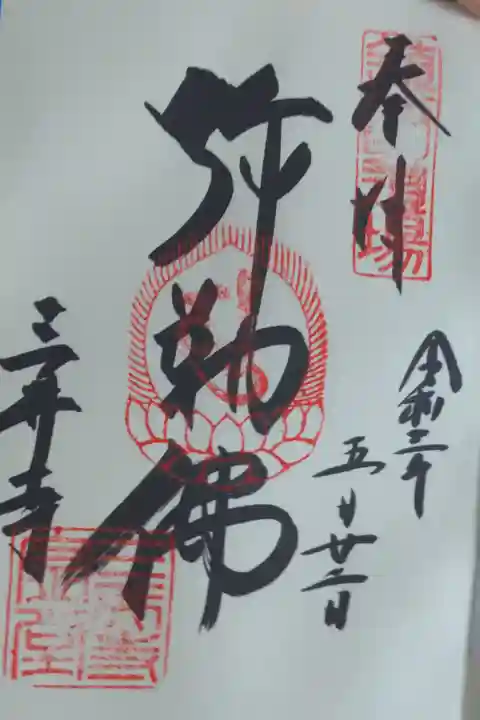 奉拝
令和三年
五月廿二日
弥勒佛
三井寺